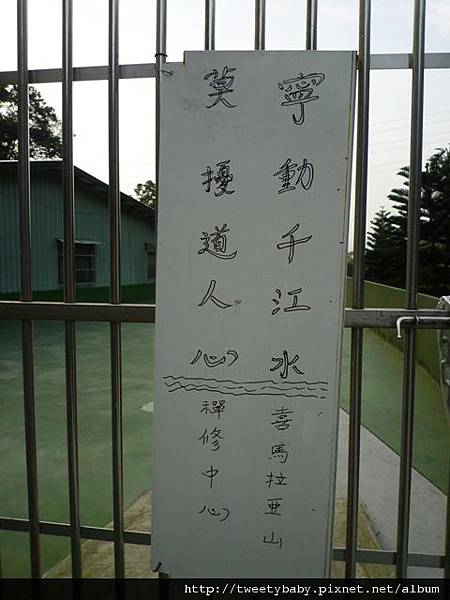 寧動千江水
莫擾道人心
喜馬拉亞山
禪修中心
http://tweetybaby.pixnet.net/album